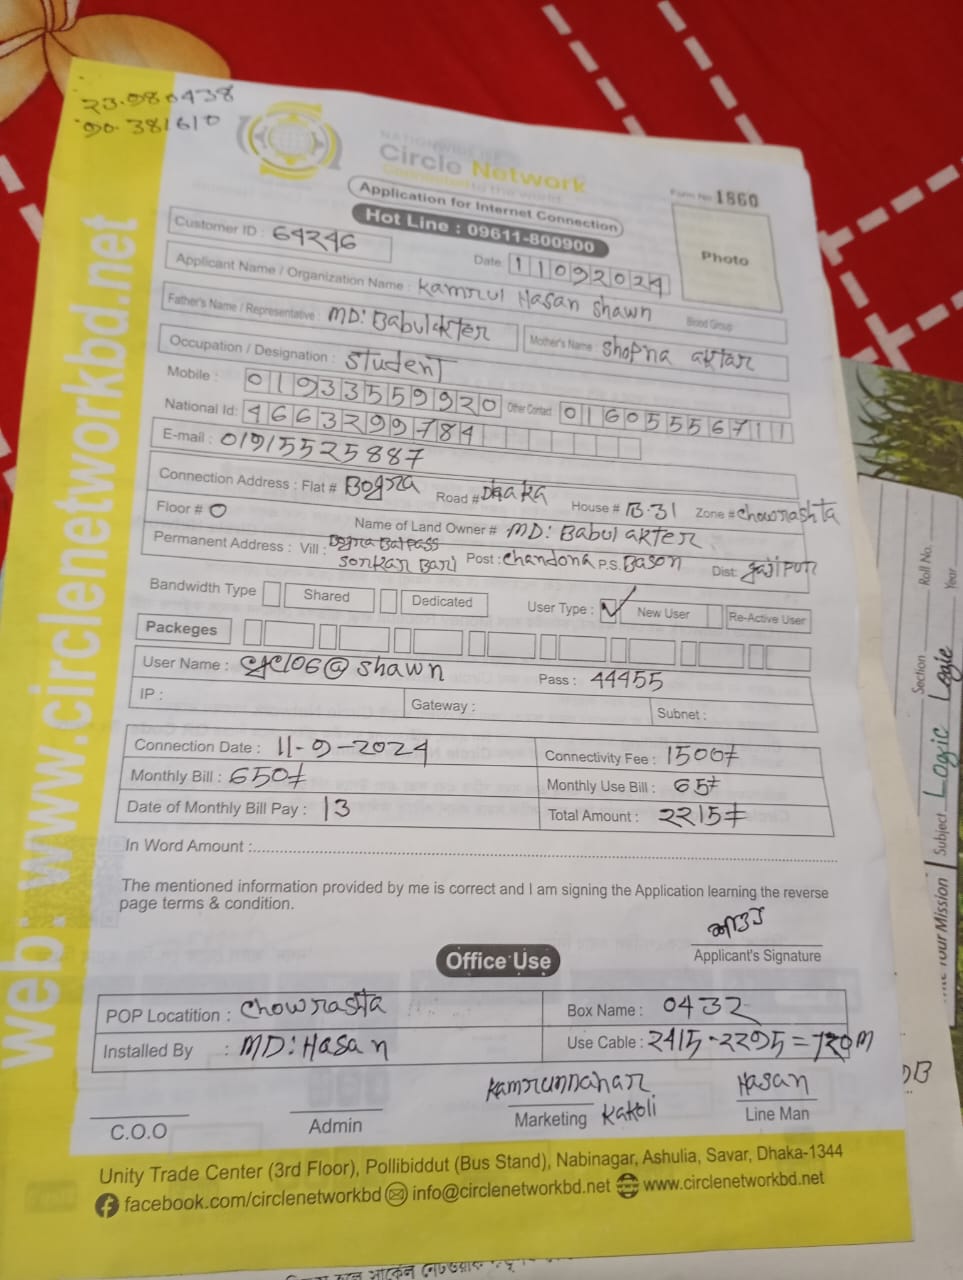 23.980438
90.381610
web: www.circlenetworkbd.net
NATIONWIDE ISP
Circle Network
Connected to the world
Form No 1860
Application for Internet Connection
Hot Line : 09611-800900
Photo
Customer ID : 64246
Date: 11092024
Applicant Name / Organization Name : Kamrul Hasan Shawn
Blood Group
Father's Name / Representative : MD: Babulakter
Mother's Name : Shopna aktar
Occupation / Designation : Student
Mobile : 01933559920 Other Contact 01605556711
National Id: 4663299784
E-mail : 01915525887
Connection Address : Flat # Bogra Road # Dhaka House # B-31 Zone # Chowrashta
Floor # 0 Name of Land Owner # MD: Babul akter
Permanent Address : Vill : Bogra Baipass Sorkar Bari Post : Chandona P.S. Bason Dist: gajipur
Bandwidth Type Shared Dedicated User Type : ✓ New User Re-Active User
Packeges
User Name : cyclo6@shawn Pass : 44455
IP : Gateway : Subnet :
Connection Date : 11-9-2024 Connectivity Fee : 1500/=
Monthly Bill : 650/= Monthly Use Bill : 65/=
Date of Monthly Bill Pay : 13 Total Amount : 2215/=
In Word Amount :
The mentioned information provided by me is correct and I am signing the Application learning the reverse
page terms & condition.
Applicant's Signature
Office Use
POP Locatition : Chowrashta Box Name : 0432
Installed By : MD: Hasan Use Cable : 2415-2295=120M
Kamrunnahar Kakoli
Hasan
C.O.O Admin Marketing Line Man
Unity Trade Center (3rd Floor), Pollibiddut (Bus Stand), Nabinagar, Ashulia, Savar, Dhaka-1344
facebook.com/circlenetworkbd info@circlenetworkbd.net www.circlenetworkbd.net
Roll No.
Year
Section
Logic
Subject Logic
Your Mission